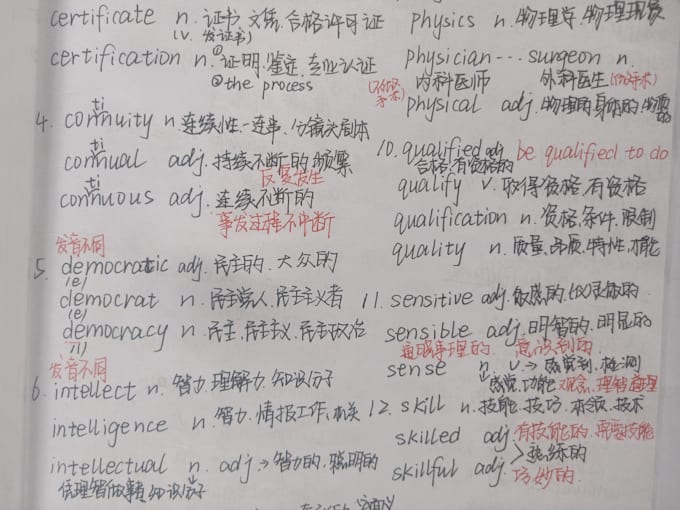 certificate n.证书.文凭.合格许可证
(v. 发证书)
certification n.①证明.鉴定.专业认证
②the process
4. continuity n.连续性.一连串.分镜头剧本
continual adj.持续不断的.频繁
反复发生
continuous adj.连续不断的
事发过程不中断
发音不同
5. democratic adj.民主的.大众的
/e/
democrat n.民主党人.民主主义者
/e/
democracy n.民主.民主主义.民主政治
/i/
发音不同
6. intellect n.智力.理解力.知识分子
intelligence n.智力.情报工作.机关
intellectual n. adj.→智力的.聪明的
凭理智做事 知识分子
physics n.物理学.物理现象
physician... surgeon n.
内科医师 外科医生
physical adj.物理的.身体的.物质的
10. qualified adj be qualified to do
合格.有资格的
qualify v.取得资格.有资格
qualification n.资格.条件.限制
quality n.质量.品质.特性.才能
11. sensitive adj.敏感的.仪灵敏的
sensible adj.明智的.明显的
通晓事理的.
sense n v→感觉到.检测
感觉.功能.观念.理智.道理
12. skill n.技能.技巧.本领.技术
skilled adj有技能的.需要技能
>熟练的
skillful adj 巧妙的.